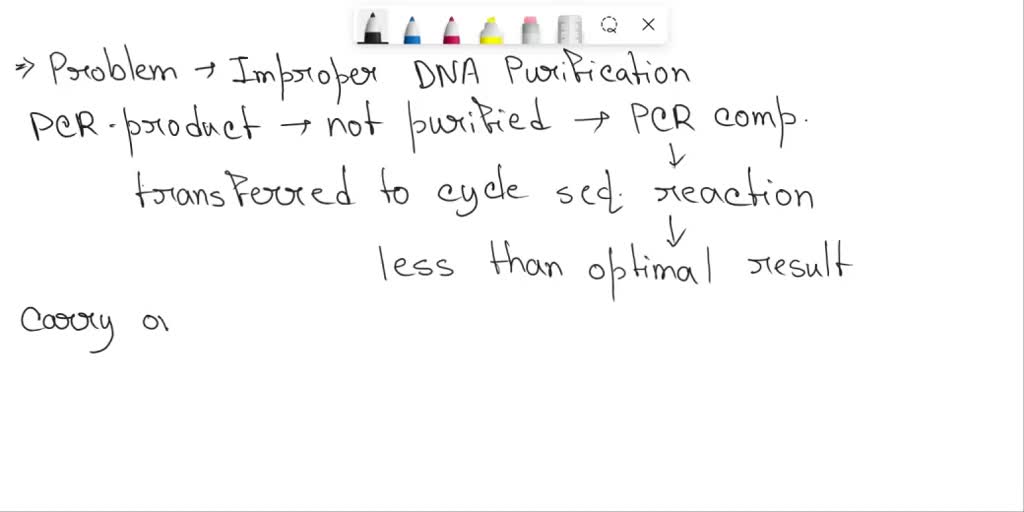 ⇒ Problem → Improper DNA Purification
PCR-product → not purified → PCR comp.
↓
transferred to cycle seq. reaction
↓
less than optimal result
Carry ov